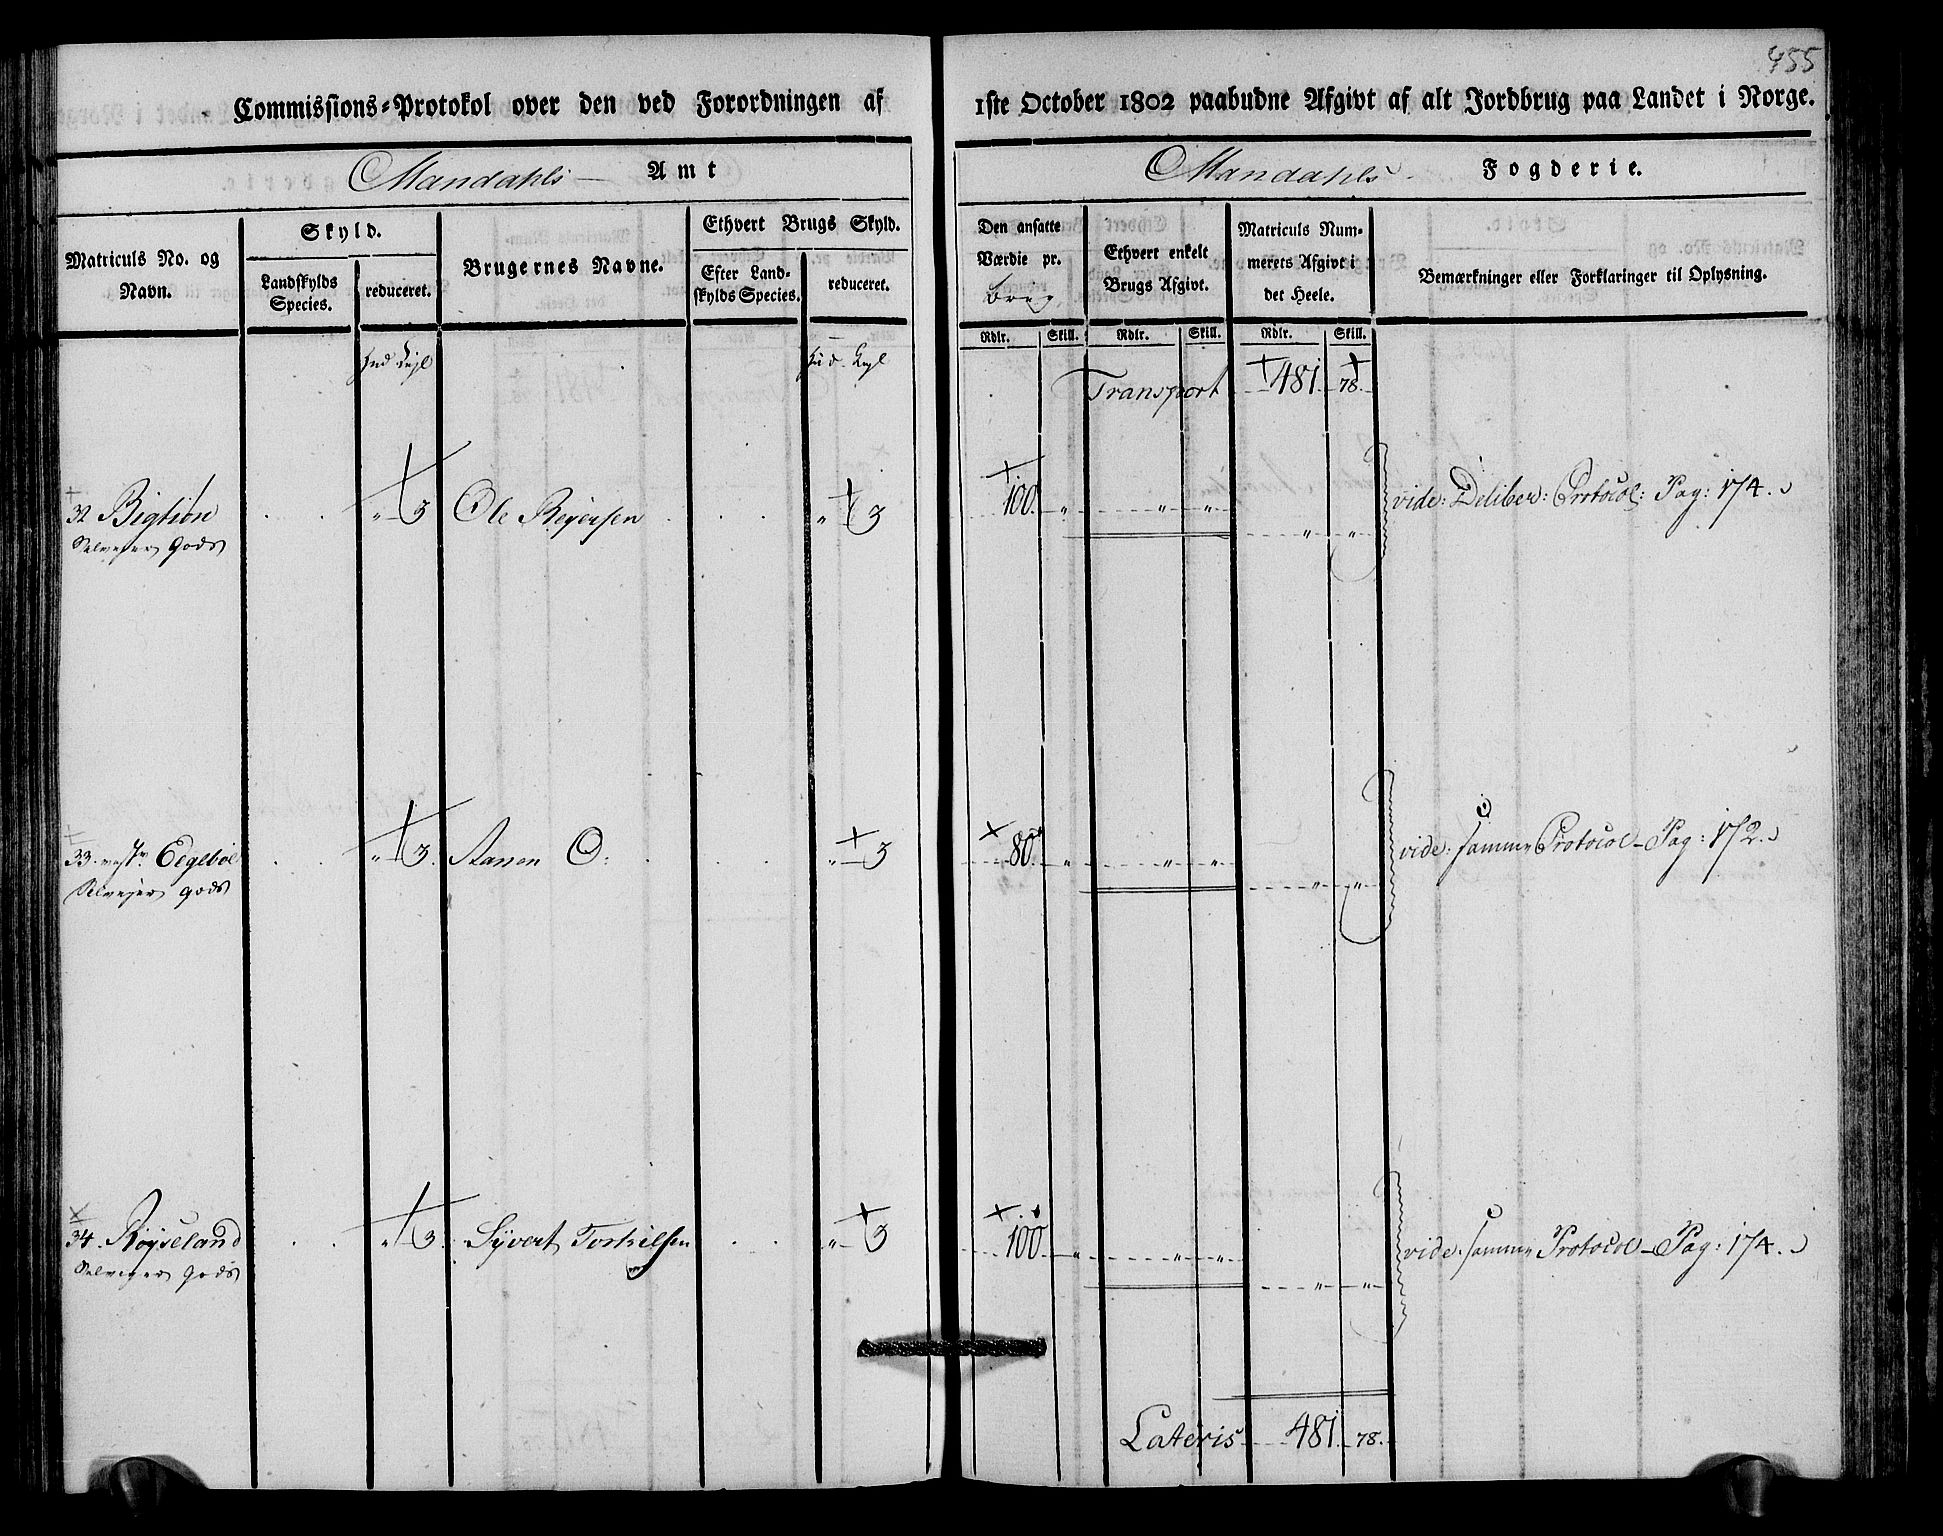 455
Commissions-Protokol over den ved Forordningen af 1ste October 1802 paabudne Afgivt af alt Jordbrug paa Landet i Norge.
Mandahls Amt
Mandahls Fogderie.
Matriculs No. og Navn.
Skyld.
Landskylds Species.
reduceret.
Brugernes Navne.
Ethvert Brugs Skyld.
Efter Landskylds Species.
reduceret.
Den ansatte Værdie pr. brug
Ethvert enkelt Brugs Afgivt.
Matriculs Nummerets Afgivt i det Heele.
Bemærkninger eller Forklaringer til Oplysning.
Rdlr. Skill. Rdlr. Skill. Rdlr. Skill.
Hud
Hud
Transport 481 78.
32 Bigtiøn " 3 Ole Reyersen " 3 100 " " " " " vide: Deliber: Protocol: Pag: 174.
Selveyer Gods
33. Eegebøe " 3. Aanen O: " 3 80 " " " " " vide: samme Protocol Pag: 172.
Selveyer gods
34. Røyseland " 3. Syvert Torkilsen " 3 100 " " " " " vide: samme Protocol Pag: 174.
Selveyer gods
Lateris 481 78.